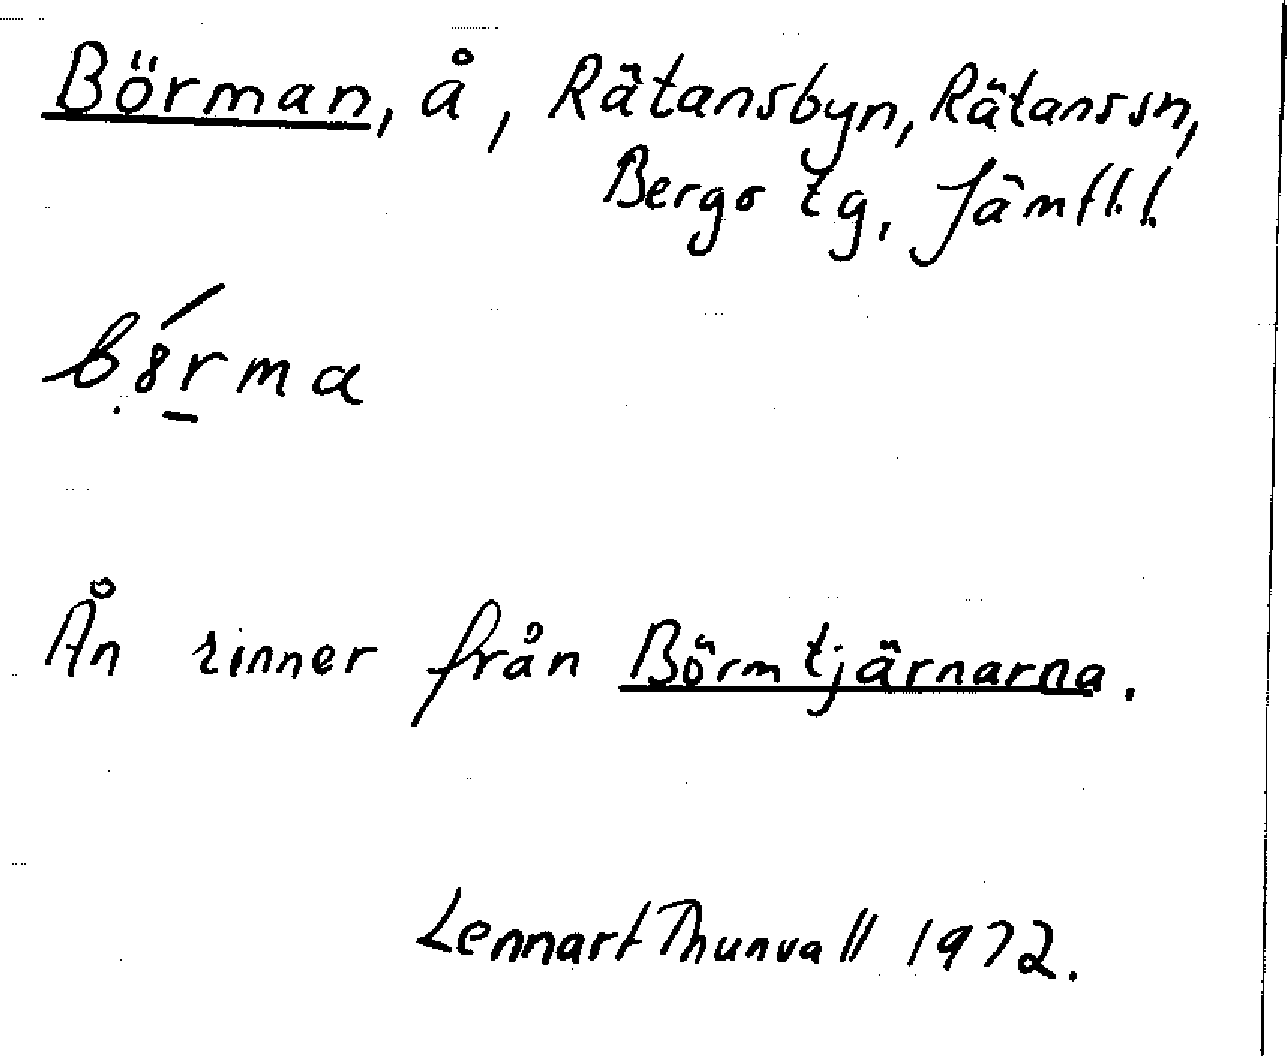 Börman, å, Rätansbyn, Rätans sn,
Bergs tg, Jämtl. l.
b8̣́r̲ma
Ån rinner från Börmtjärnarna.
Lennart Thunvall 1972.